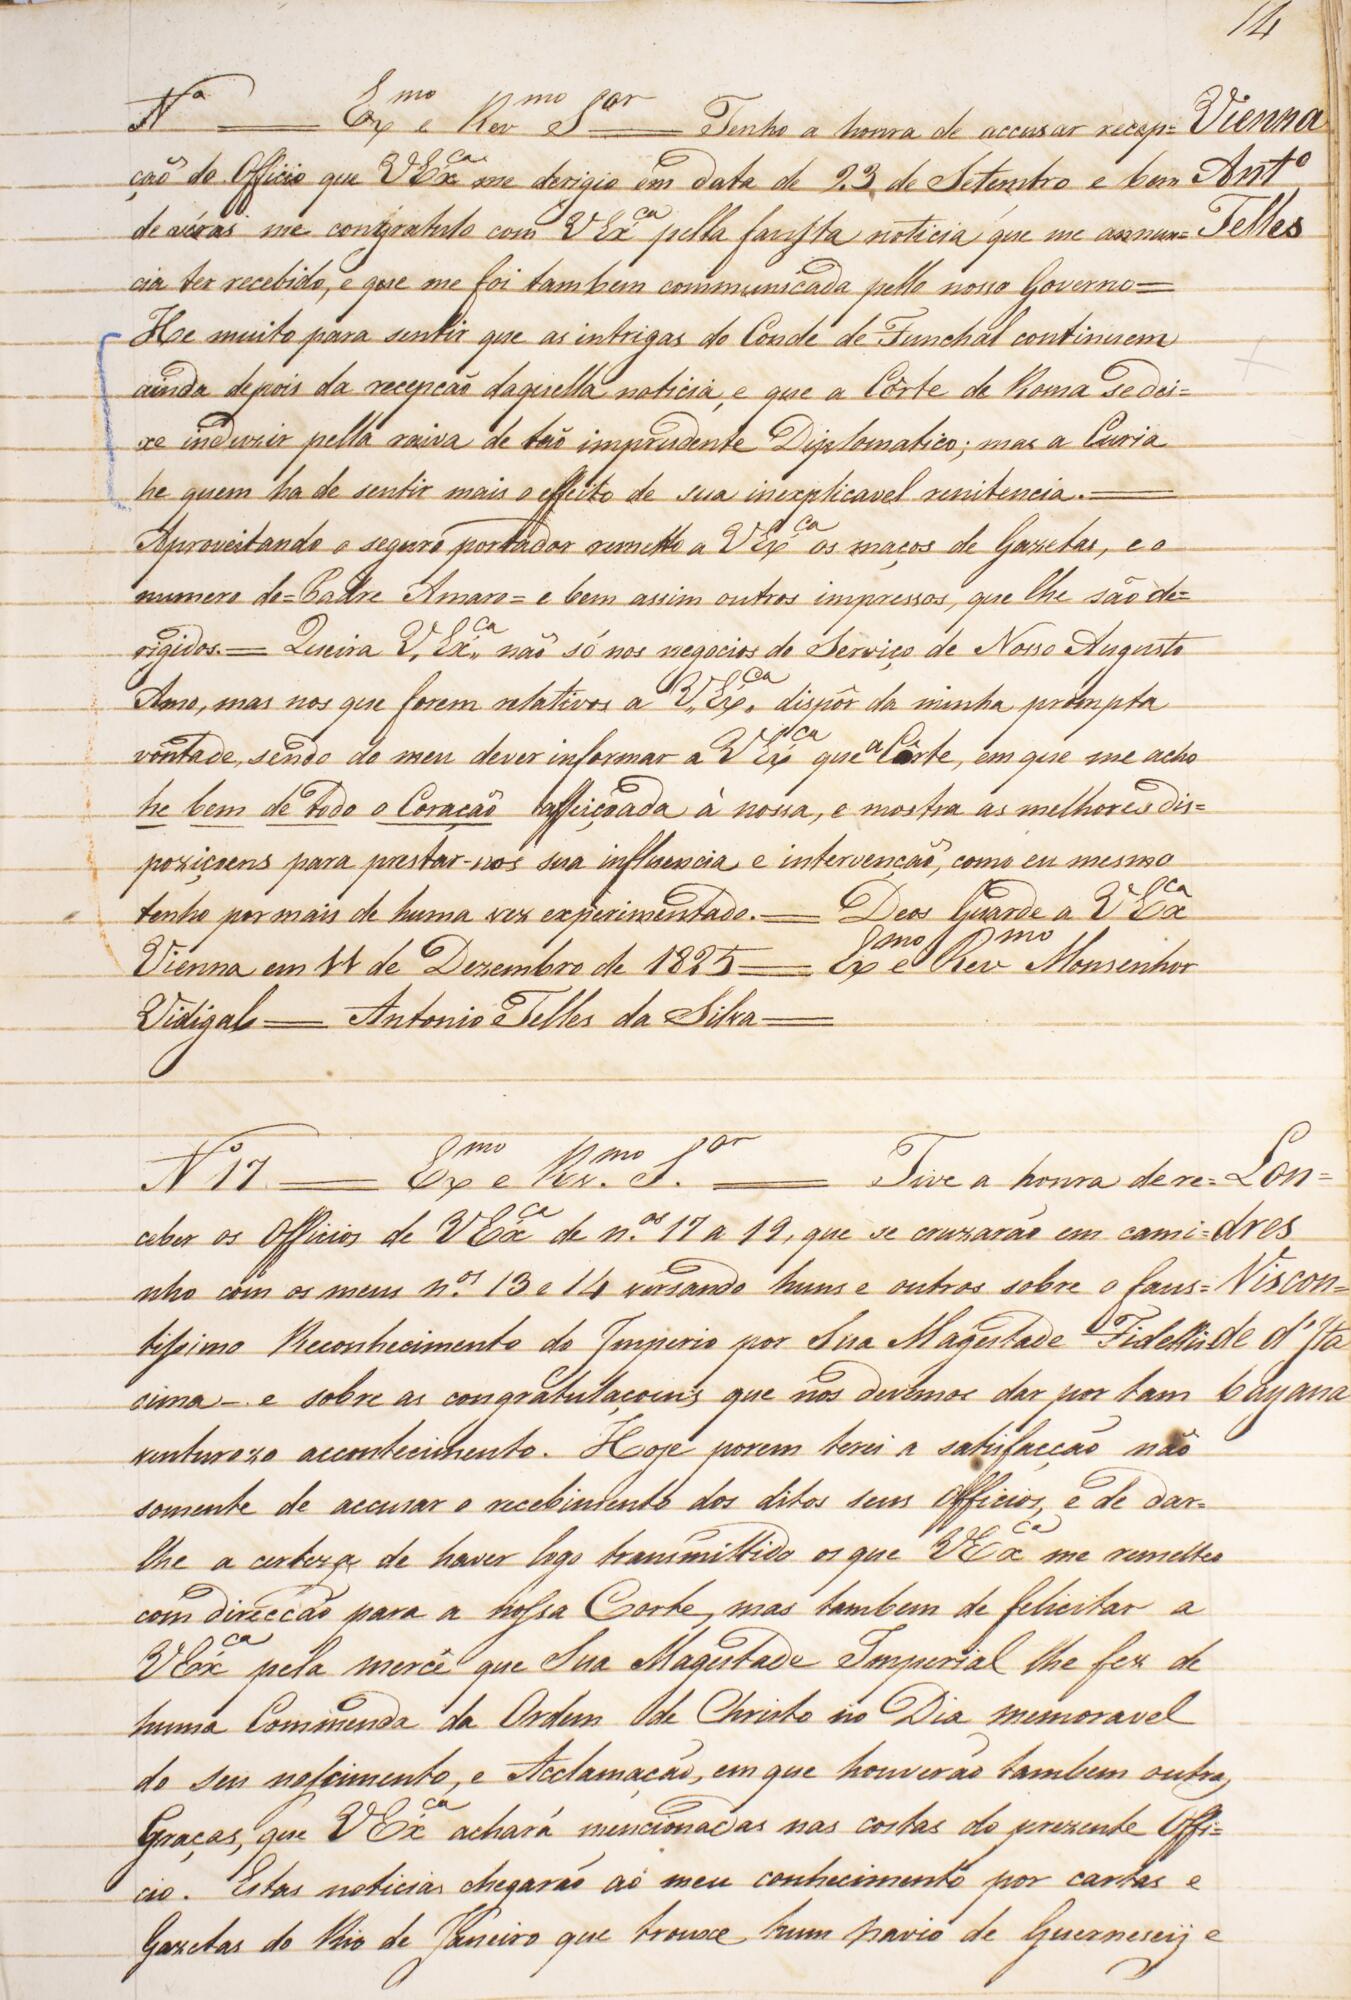 14
Nº — Exmo e Rev mo Sor — Tenho a honra de accusar recep=
ção do Officio que VExca me derigio em data de 23 de Setembro e bem
de véras me congratulo com VExca pella fausta noticia que me annun=
cia ter recebido, e que me foi tambem communicada pello nosso Governo=
He muito para sentir que as intrigas do Conde de Funchal continuem
ainda depois da recepcão daquella noticia, e que a Côrte de Roma se dei=
xe induzir pella raiva de tão imprudente Diplomatico; mas a Curia
he quem ha de sentir mais o effeito de sua inexplicavel renitencia.=
Aproveitando o seguro portador remetto a VExca os maços de Gazetas, e o
numero do=Padre Amaro= e bem assim outros impressos, que lhe são de=
rigidos.= Queira V.Exca não só nos negocios do Serviço de Nosso Augusto
Amo, mas nos que forem relativos a V.Exca dispôr da minha prompta
vontade, sendo do meu dever informar a VExca que a Côrte, em que me acho
he bem de todo o Coração affeiçoada á nossa, e mostra as melhores dis=
poziçoens para prestar-nos sua influencia e intervenção, como eu mesmo
tenho por mais de huma vez experimentado.= Deos Guarde a VExca
Vienna em 11 de Dezembro de 1825= Exmo e Revmo Monsenhor
Vidigal= Antonio Telles da Silva=
Vienna
Antº
Telles
Nº 17 — Exmo e Rv.mo S.or — Tive a honra de re=
ceber os Officios de VExca de n.os 17 a 19, que se cruzarão em cami=
nho com os meus n.os 13 e 14 versando huns e outros sobre o faus=
tissimo Reconhecimento do Imperio por Sua Magestade Fidellis
sima - e sobre as congratulaçoens que nos devemos dar por tam
venturozo accontecimento. Hoje porem terei a satisfacção não
somente de accusar o recebimento dos ditos seus Officios, e de dar=
lhe a certeza de haver logo transmittido os que VExca me remetteo
com direccão para a nossa Corte, mas tambem de felicitar a
VExca pela mercê que Sua Magestade Imperial lhe fez de
huma Commenda da Ordem de Christo no Dia memoravel
do seu nascimento, e Acclamação, em que houverão tambem outras
Graças, que VExca achará mencionadas nas costas do prezente Offi=
cio. Estas noticias chegarão ao meu conhecimento por cartas e
Gazetas do Rio de Janeiro que trouxe hum navio de Guernesey e
Lon=
dres
Viscon=
de d'Ita
bayana